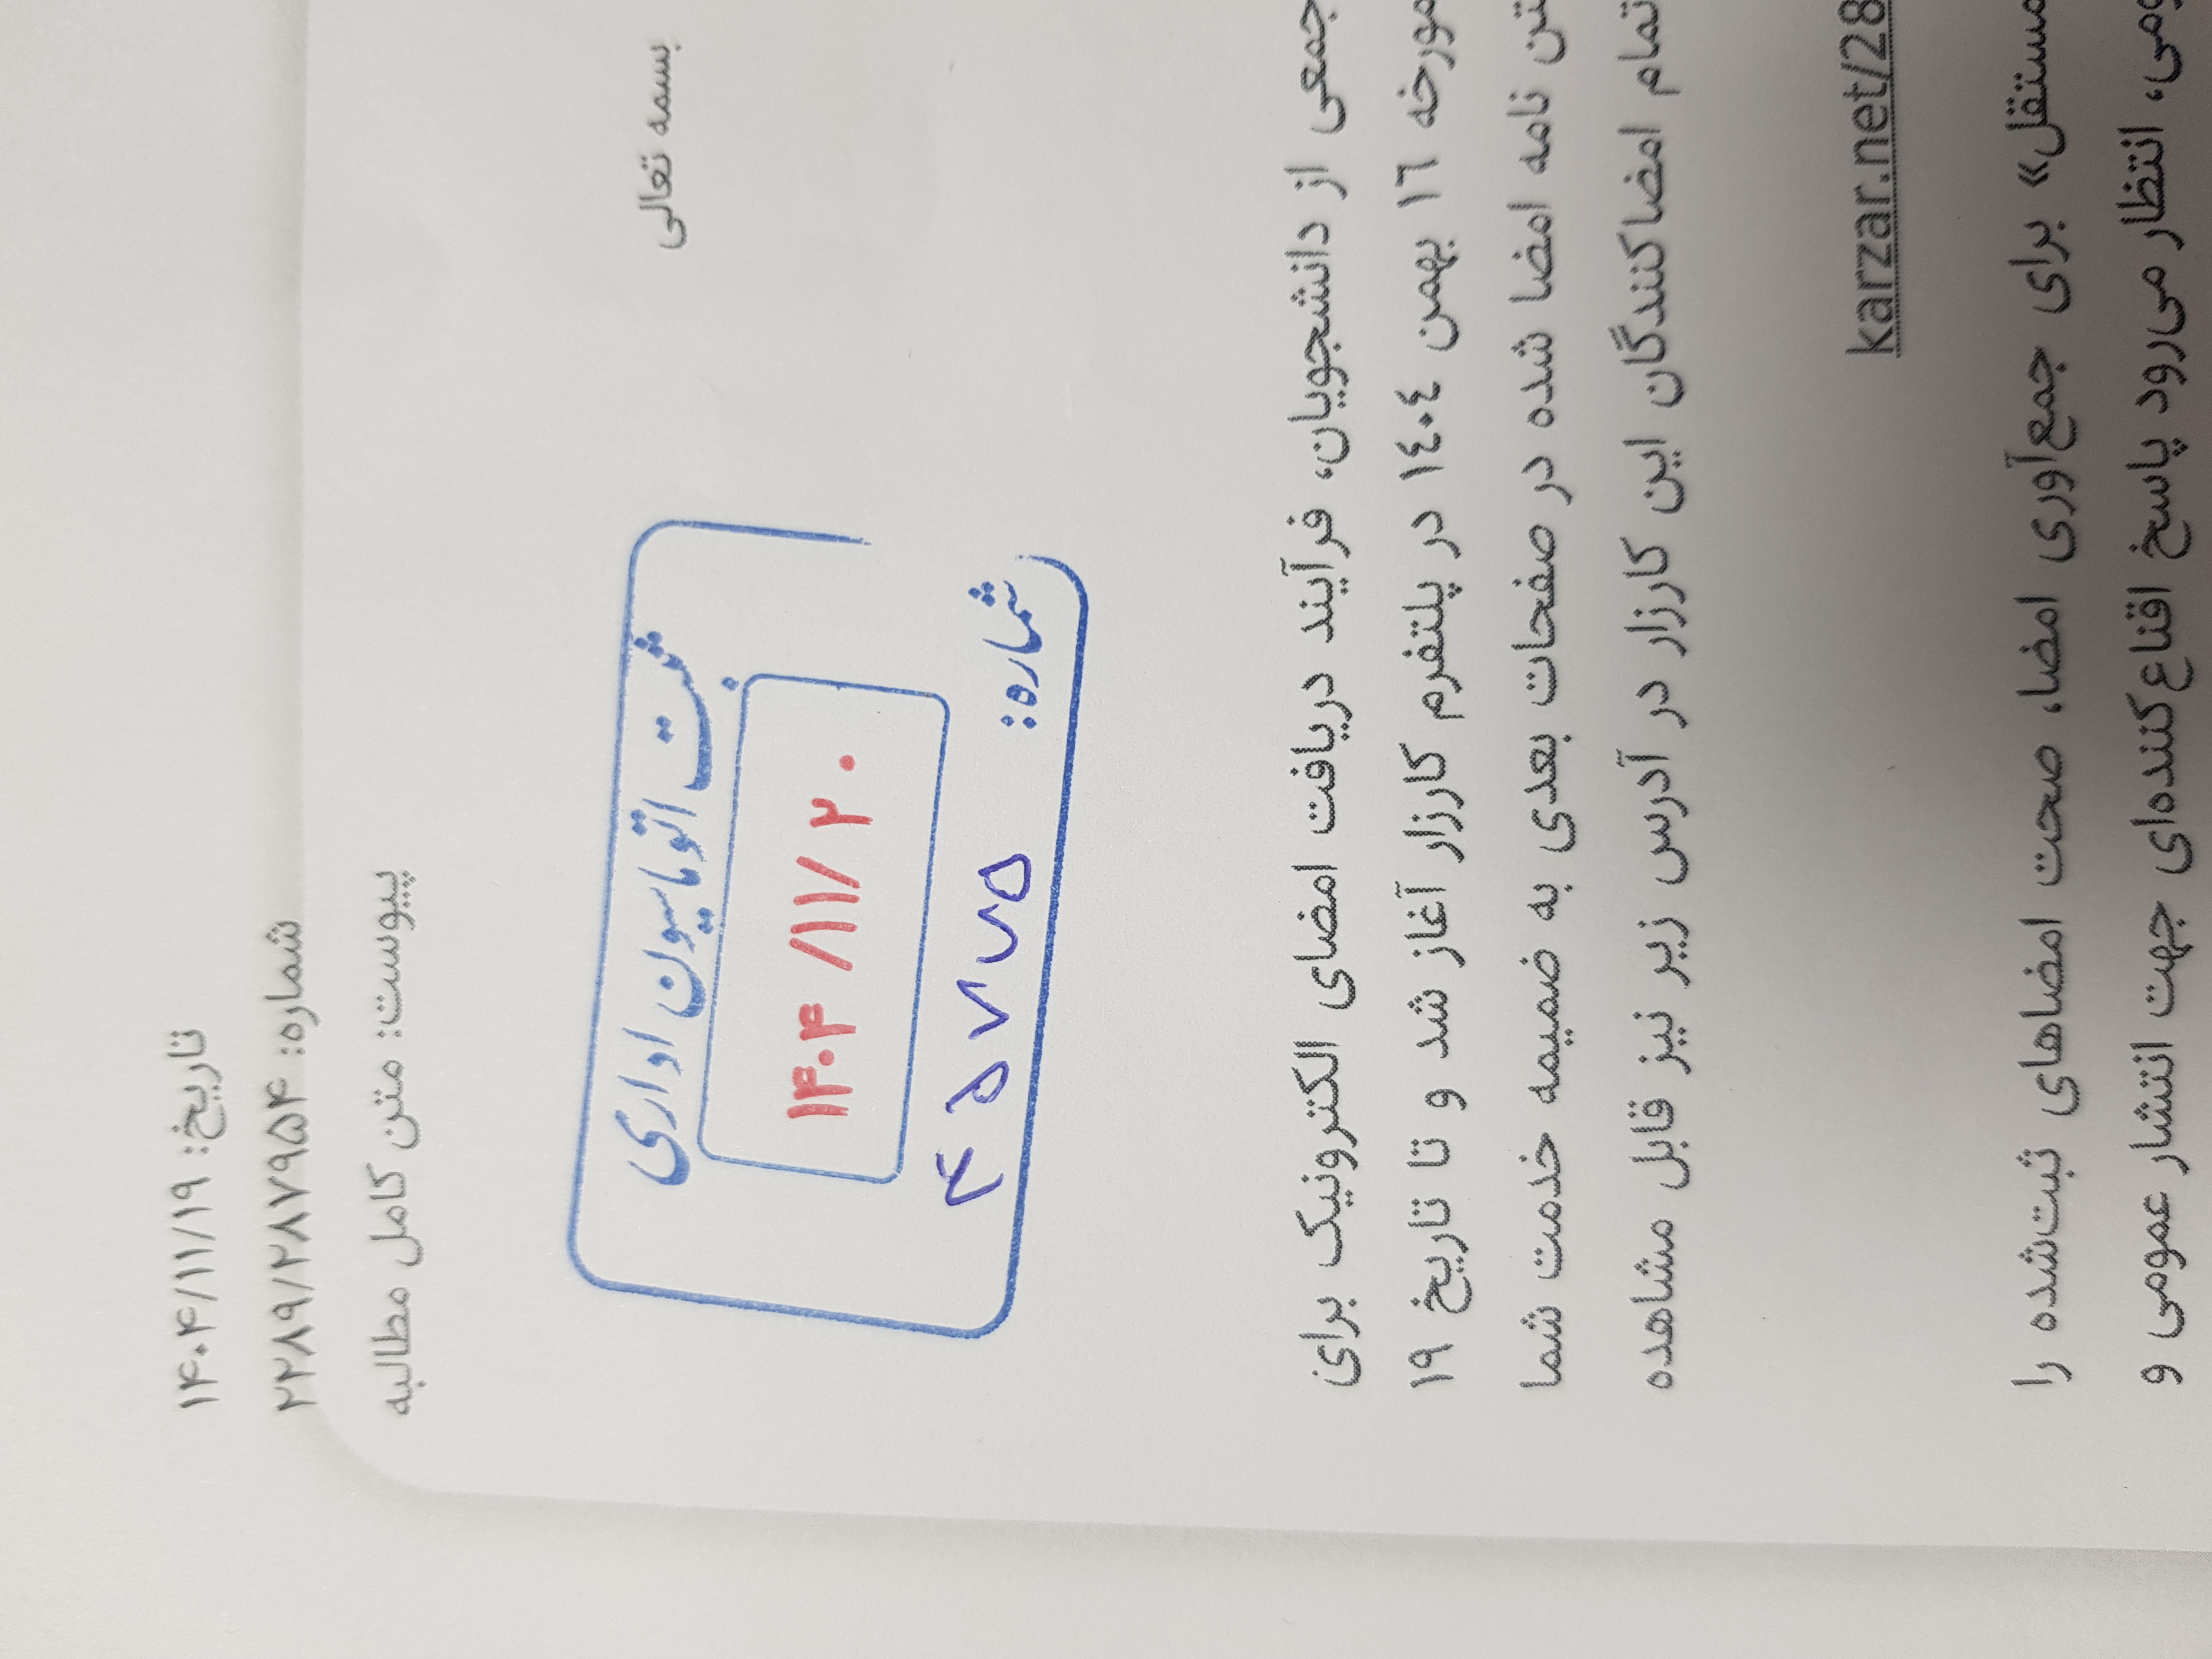 تاریخ: ۱۴۰۴/۱۱/۱۹
شماره: ۲۲۸۹/۲۸۷۹۵۴
پیوست: متن کامل مطالبه
بسمه تعالی
ثبت اتوماسیون اداری
۱۴۰۴/۱۱/۲۰
شماره:
جمعی از دانشجویان، فرآیند دریافت امضای الکترونیک برای
مورخه ١٦ بهمن ١٤٠٤ در پلتفرم کارزار آغاز شد و تا تاریخ ۱۹
متن نامه امضا شده در صفحات بعدی به ضمیمه خدمت شما
تمام امضاکنندگان این کارزار در آدرس زیر نیز قابل مشاهده
karzar.net/28
مستقل» برای جمع‌آوری امضا، صحت امضاهای ثبت‌شده را
انتظار می‌رود پاسخ اقناع‌کننده‌ای جهت انتشار عمومی و